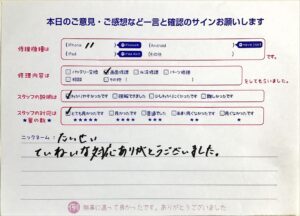 本日のご意見・ご感想など一言と確認のサインお願いします
修理機種は
iPhone 11
Android
iPad
その他
です。
修理内容は
バッテリー交換 画面修理 水没修理 パーツ修理
初期設定 その他
をしてもらいました。
スタッフの説明は
わかりやすかったです 理解できました 少しわかりにくかったです 難しかったです
スタッフの対応は
とても良かったです 良かったです 普通でした あまり良くなかったです 良くなかったです
★星の数★
★★★★★ ★★★★ ★★★ ★★ ★
ニックネーム：たいせい
ていねいな対応ありがとうございました。
無事に直って良かったです。ありがとうございました